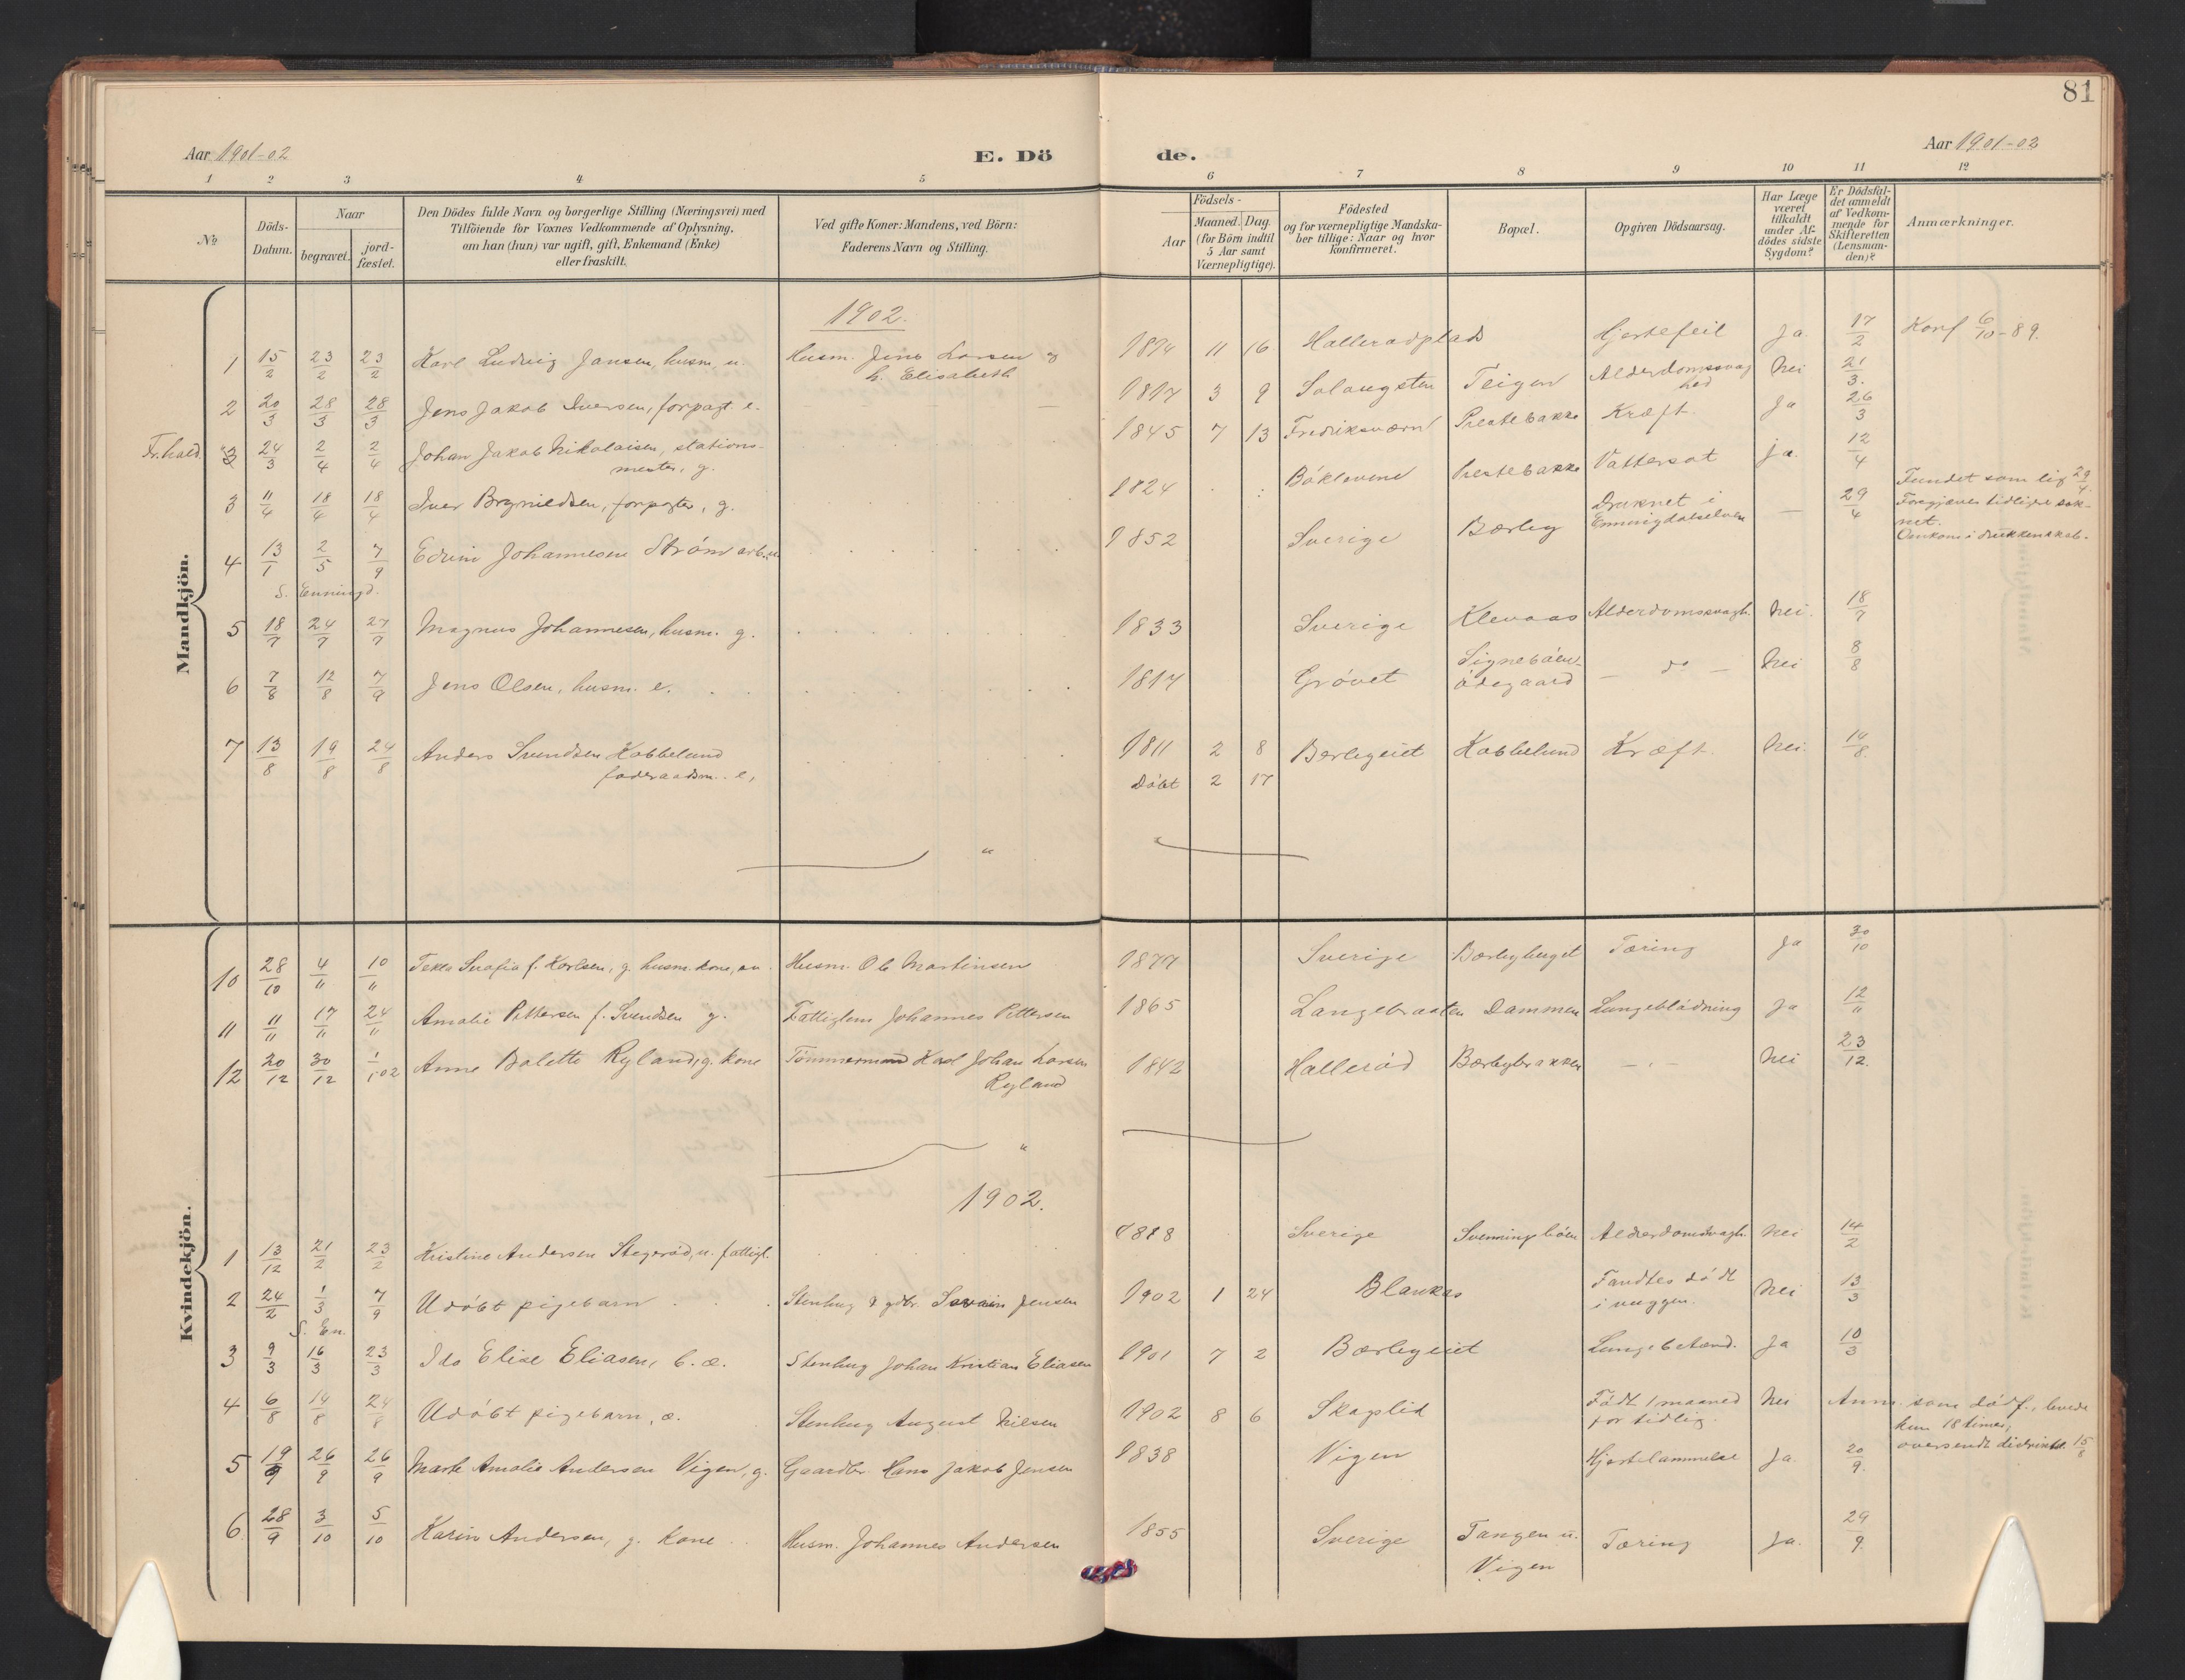 81
Aar 1901-02
E. Dö
de.
Aar 1901-02
1 2 3 4 5 6 7 8 9 10 11 12
№
Döds-Datum.
Naar
begravet.
jord-fæstet.
Den Dödes fulde Navn og borgerlige Stilling (Næringsvei) med
Tilföiende for Voxnes Vedkommende af Oplysning,
om han (hun) var ugift, gift, Enkemand (Enke)
eller fraskilt.
Ved gifte Koner: Mandens, ved Börn:
Faderens Navn og Stilling.
Födsels-
Aar
Maaned. Dag.
(for Börn indtil
5 Aar samt
Værnepligtige).
Födested
og for værnepligtige Mandska-
ber tillige: Naar og hvor
konfirmeret.
Bopæl.
Opgiven Dödsaarsag.
Har Læge
været
tilkaldt
under Af-
dödes sidste
Sygdom?
Er Dödsfal-
det anmeldt
af Vedkom-
mende for
Skifteretten
(Lensman-
den)?
Anmærkninger.
Mandkjön.
1902.
1 15/2 23/2 23/2 Karl Ludvig Jansen, husm. u. Husm. Jens Larsen og 1874 11 16 Hallerødplads Hjertefeil Ja. 17/2 Konf 6/10-89.
h. Elisabeth
2 20/3 28/3 28/3 Jens Jakob Iversen, forpagt. e. — 1817 3 9 Solaugsten Teigen Alderdomssvag nei 21/3.
hed
Fr.hald. 3 24/3 2/4 2/4 Johan Jakob Nikolaisen, stations- 1845 7 13 Fredriksværn Prestebakke Kræft. Ja 26/3
mester, g.
3 11/4 18/4 18/4 Iver Brynildsen, forpagter, g. 1824 Böklevene Prestebakke Vattersot ja. 12/4
4 13/1 2/5 7/9 Edvin Johannesen Ström arb. u. 1852 Sverige Bærby Druknet i — 29/4 Fundet som lig 29/4.
Enningdalselven
Forgjæves tidligere sok-
net.
Omkom i drukkenskab.
S. Enningd.
5 18/7 24/7 27/7 Magnus Johannesen, husm. g. 1833 Sverige Klevaas Alderdomssvagh. nei. 18/7
6 7/8 12/8 7/9 Jens Olsen, husm. e. 1817 Grövet Signebøen- — do — nei 8/8
ødegaard
7 13/8 19/8 24/8 Anders Svendsen Kobbelund 1811 2 8 Berbyeiet Kobbelund Kræft. nei. 14/8.
föderaadsm. e.
Döbt 2 17
"
Kvindekjön.
10 28/10 4/11 10/11 Tekla Serafia f. Karlsen, g. husm. kone, Husm. Ole Martinsen 1877 Sverige Bærbyberget Tæring Ja 30/10
11 11/11 17/11 24/11 Amalie Pettersen f. Svendsen g. Fattiglem Johannes Pettersen 1865 Langebraaten Dammen Lungeblödning Ja 12/11
12 20/12 30/12 1/1 02 Anne Bolette Ryland, g. kone Tömmermand Karl Johan Larsen 1842 Halleröd Bærbybrakken — " — nei 23/12.
Ryland
"
1902.
1 13/12 21/2 23/2 Kristine Andersen Stegeröd, u. fattigl. 1818 Sverige Svenningsböen Alderdomssvagh. nei 14/2
2 24/2 1/3 7/9 Udöbt pigebarn Stenhug. & gdbr. Severin Jensen 1902 1 24 Blankaas Fandtes död nei 13/3
i vuggen.
S. En.
3 9/3 16/3 23/3 Ida Elise Eliasen, b. æ. Stenhug Johan Kristian Eliasen 1901 7 2 Bærbyeiet Lungebetænd. Ja 10/3
4 6/8 14/8 24/8 Udöbt pigebarn, æ. Stenhug August Nilsen 1902 8 6 Skaplid Födt 1 maaned nei Anm. som dödf., levede
for tidlig.
kun 18 timer,
oversendt distriktsl. 15/8
5 19/9 26/9 26/9 Marte Amalie Andersen Vigen, g. Gaardbr. Hans Jakob Jensen 1838 Vigen Hjertelammelse Ja. 20/9.
6 28/9 3/10 5/10 Karin Andersen, g. kone Husm. Johannes Andersen 1855 Sverige Tangen u. Tæring Ja. 29/9.
Vigen